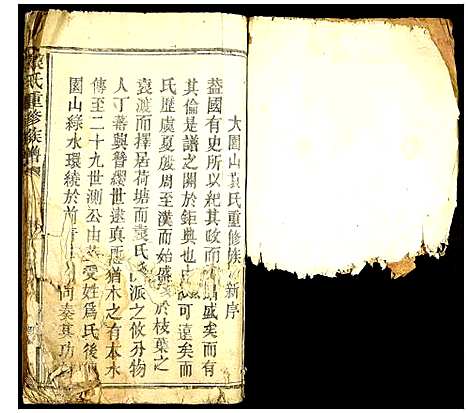 大園山袁氏重修族新序
蓋國有史所以紀其政而盛矣而有
其倫是譜之關於鉅典也可遠矣而
氏歷虞夏殷周至漢而始盛於枝葉之
袁渡而擇居荷塘而袁氏派之攸分物
人丁蕃與簪纓世遠真猶木之有本水
傳至二十九世測公由受姓爲氏後
園山綠水環繞於前尚奏其功
氏重修族譜